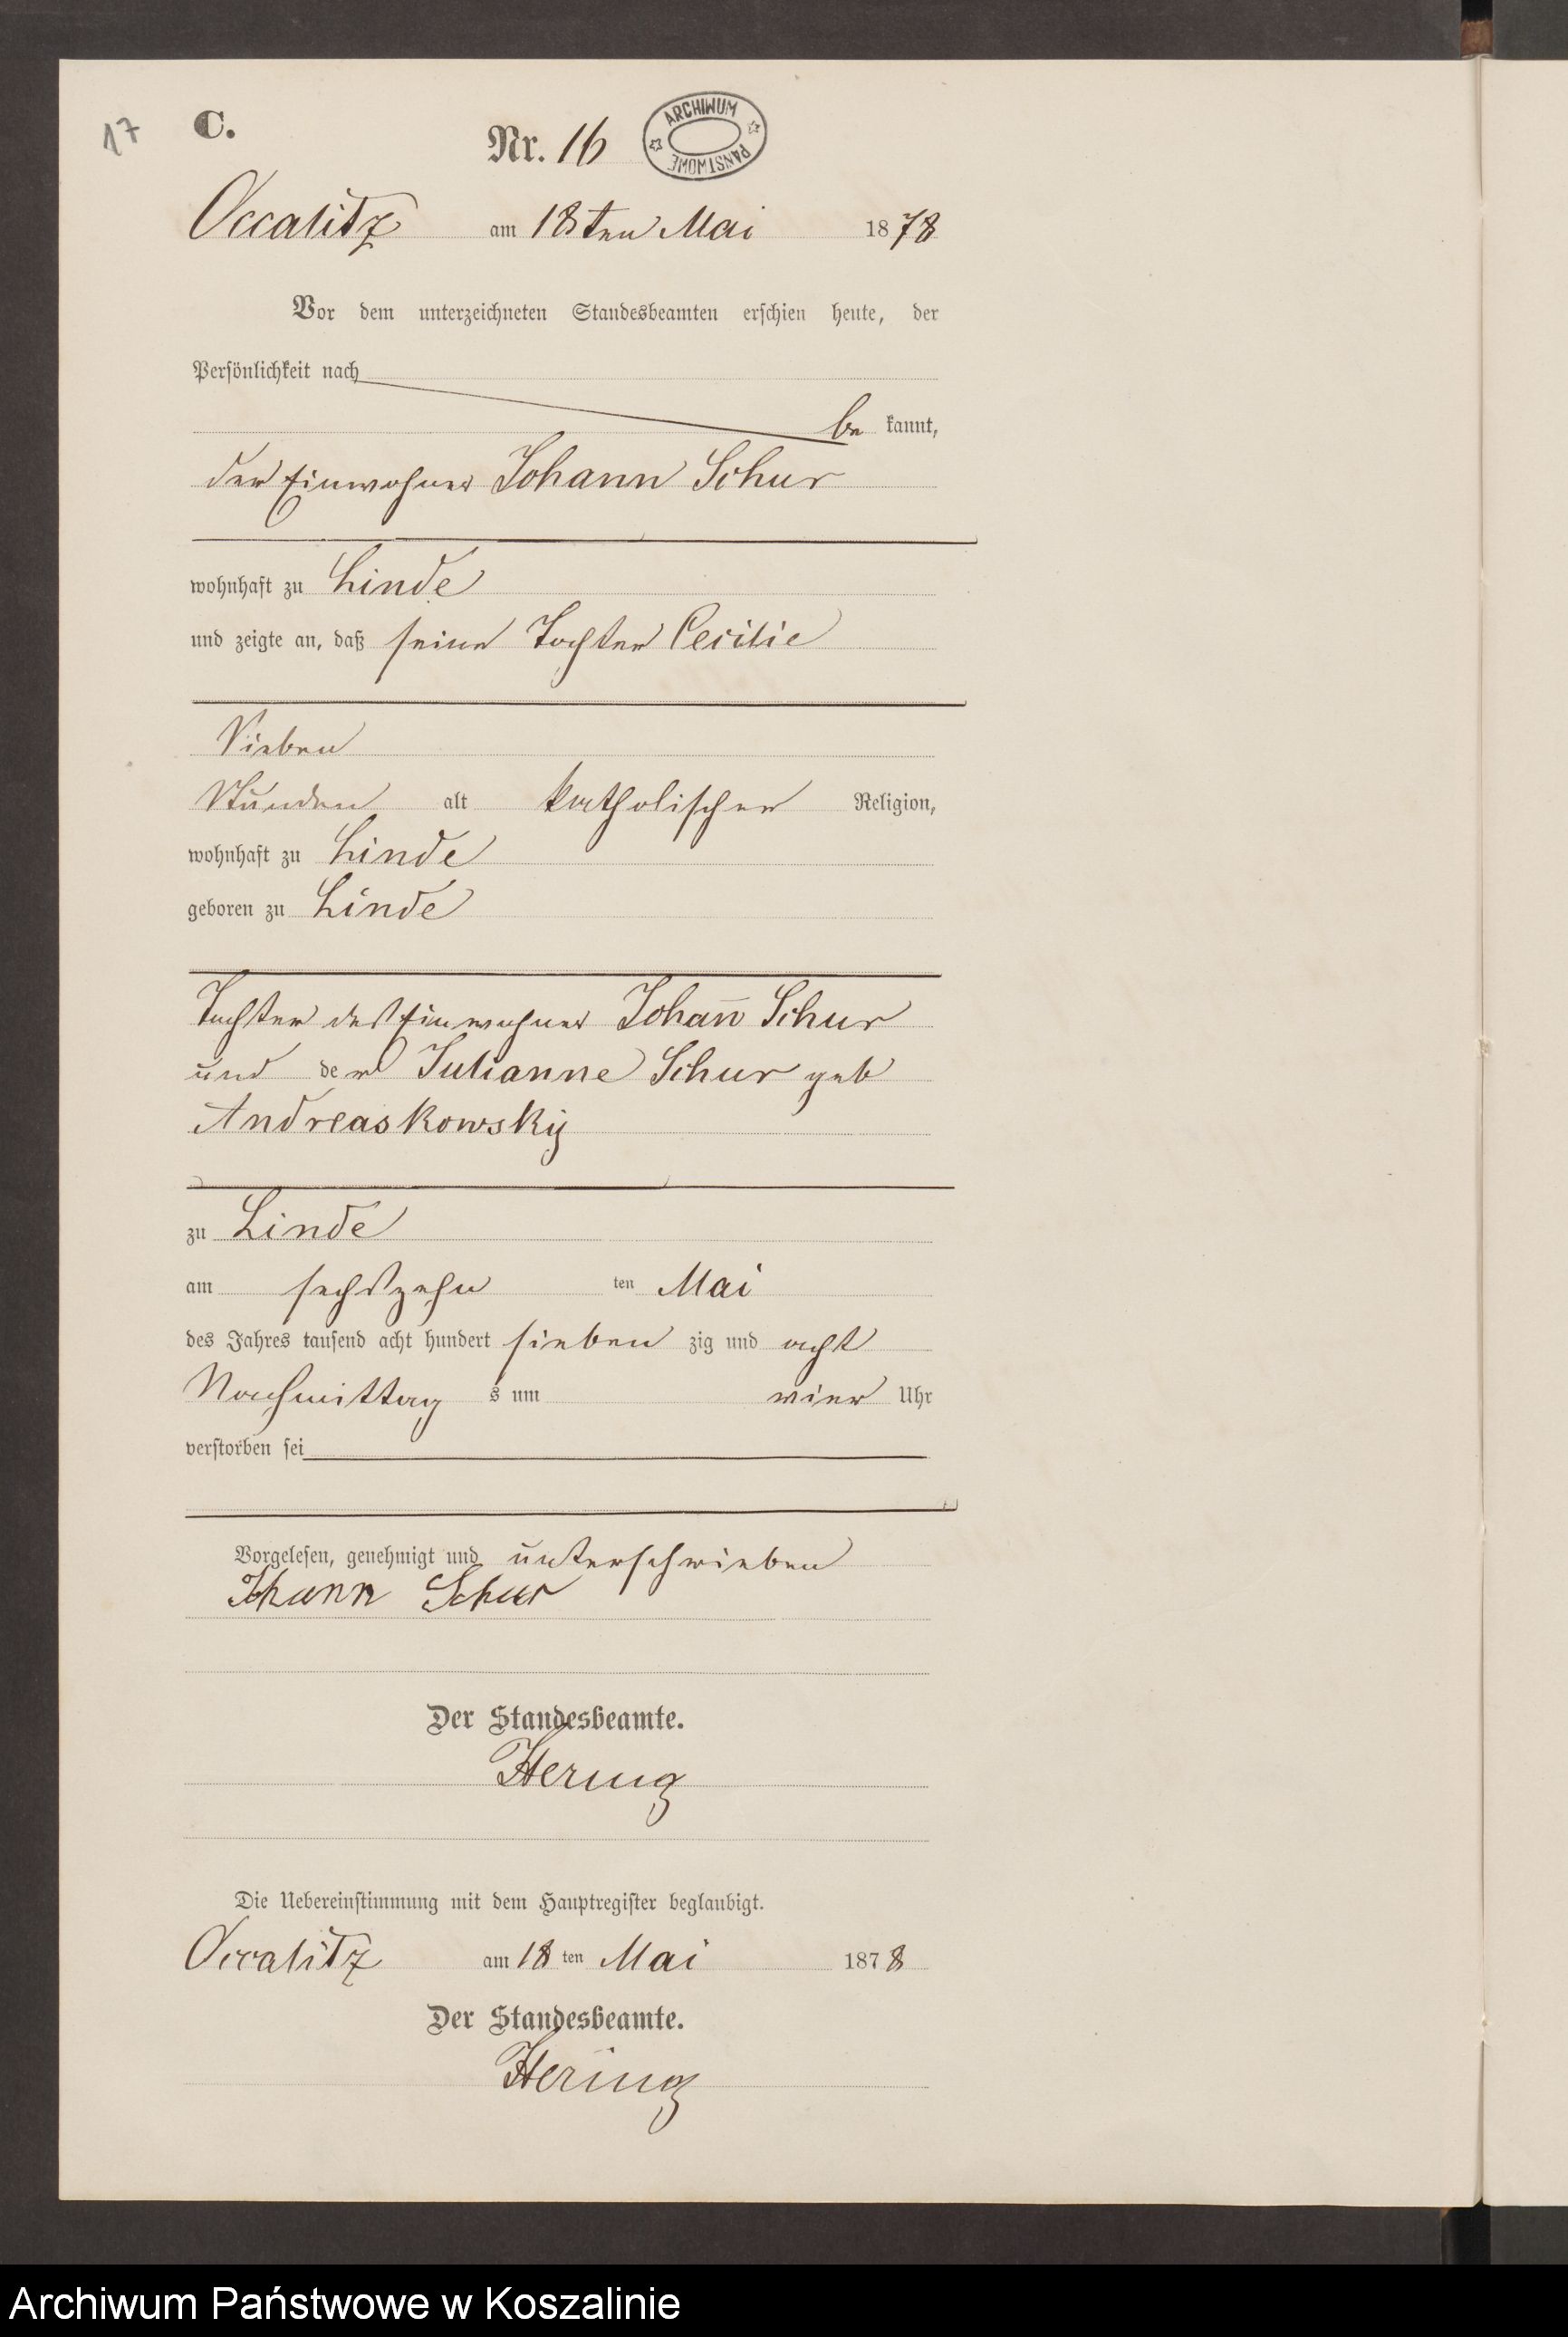 17
C.
Nr. 16
ARCHIWUM PAŃSTWOWE
Occalitz am 18ten Mai 1878
Vor dem unterzeichneten Standesbeamten erschien heute, der
Persönlichkeit nach
be kannt,
der Einwohner Johann Schur
wohnhaft zu Linde
und zeigte an, daß seine Tochter Cecilie
Sieben
Stunden alt katholischer Religion,
wohnhaft zu Linde
geboren zu Linde
Tochter des Einwohner Johan̄ Schur
und der Julianne Schur geb
Andreaskowsky
zu Linde
am sechszehn ten Mai
des Jahres tausend acht hundert sieben zig und acht
Nachmittag s um vier Uhr
verstorben sei
Vorgelesen, genehmigt und unterschrieben
Johann Schur
Der Standesbeamte.
Hering
Die Uebereinstimmung mit dem Hauptregister beglaubigt.
Occalitz am 18 ten Mai 1878
Der Standesbeamte.
Hering
Archiwum Państwowe w Koszalinie